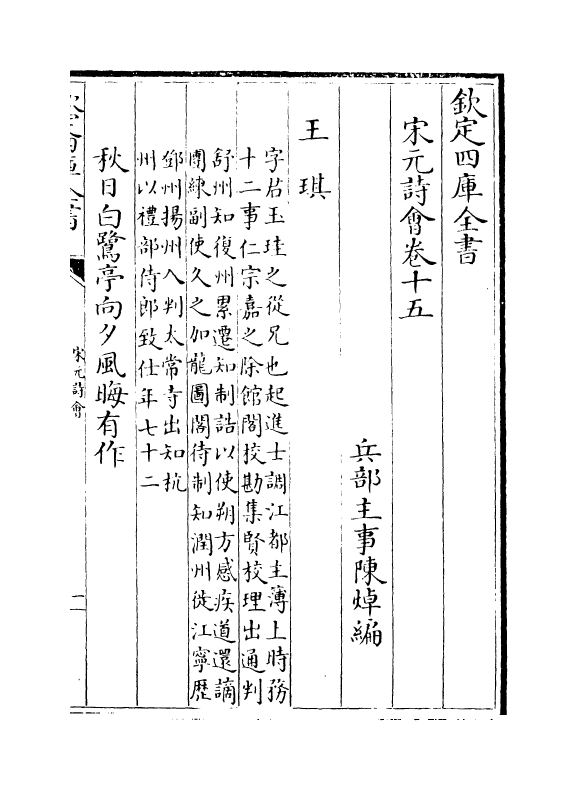 欽定四庫全書
宋元詩會卷十五
兵部主事陳焯編
王琪
字君玉珪之從兄也起進士調江都主薄上時務
十二事仁宗嘉之除館閣校勘集賢校理出通判
舒州知復州累遷知制誥以使朔方感疾道還謫
團練副使久之加龍圖閣待制知潤州徙江寧歷
鄧州揚州入判太常寺出知杭
州以禮部侍郎致仕年七十二
秋日白鷺亭向夕風晦有作
宋元詩會